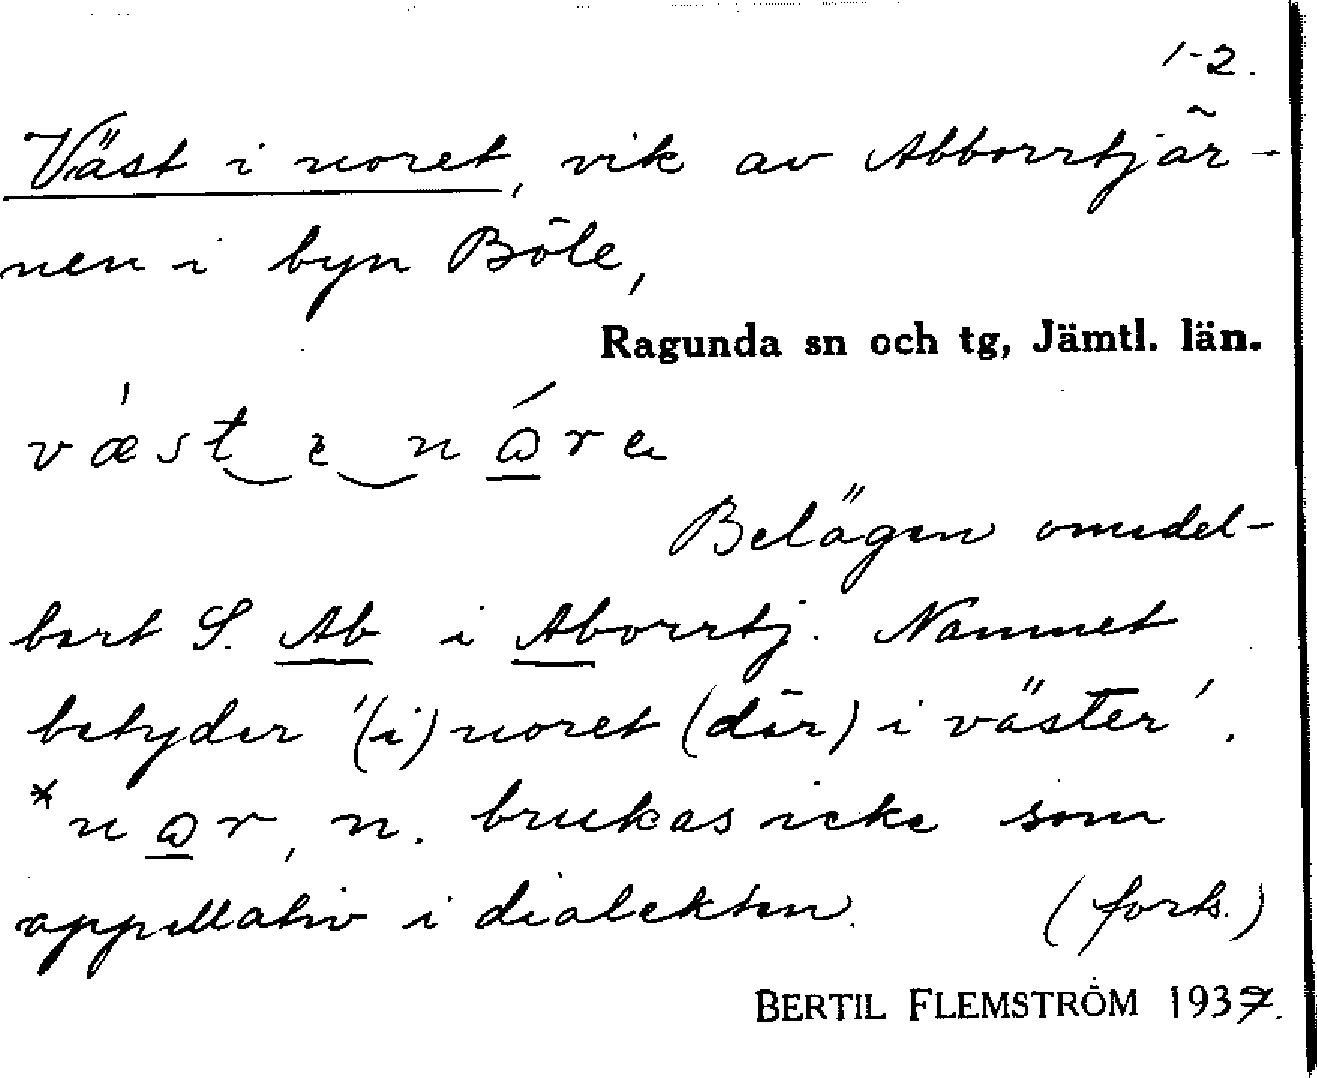 1-2.
Väst i noret, vik av Abborrtjär-
nen i byn Böle,
Ragunda sn och tg, Jämtl. län.
Belägen omedel-
bart S. Ab i Aborrtj. Namnet
betyder '(i) noret (där) i väster'.
n. brukas icke som
appellativ i dialekten. (forts.)
BERTIL FLEMSTRÖM 1937.